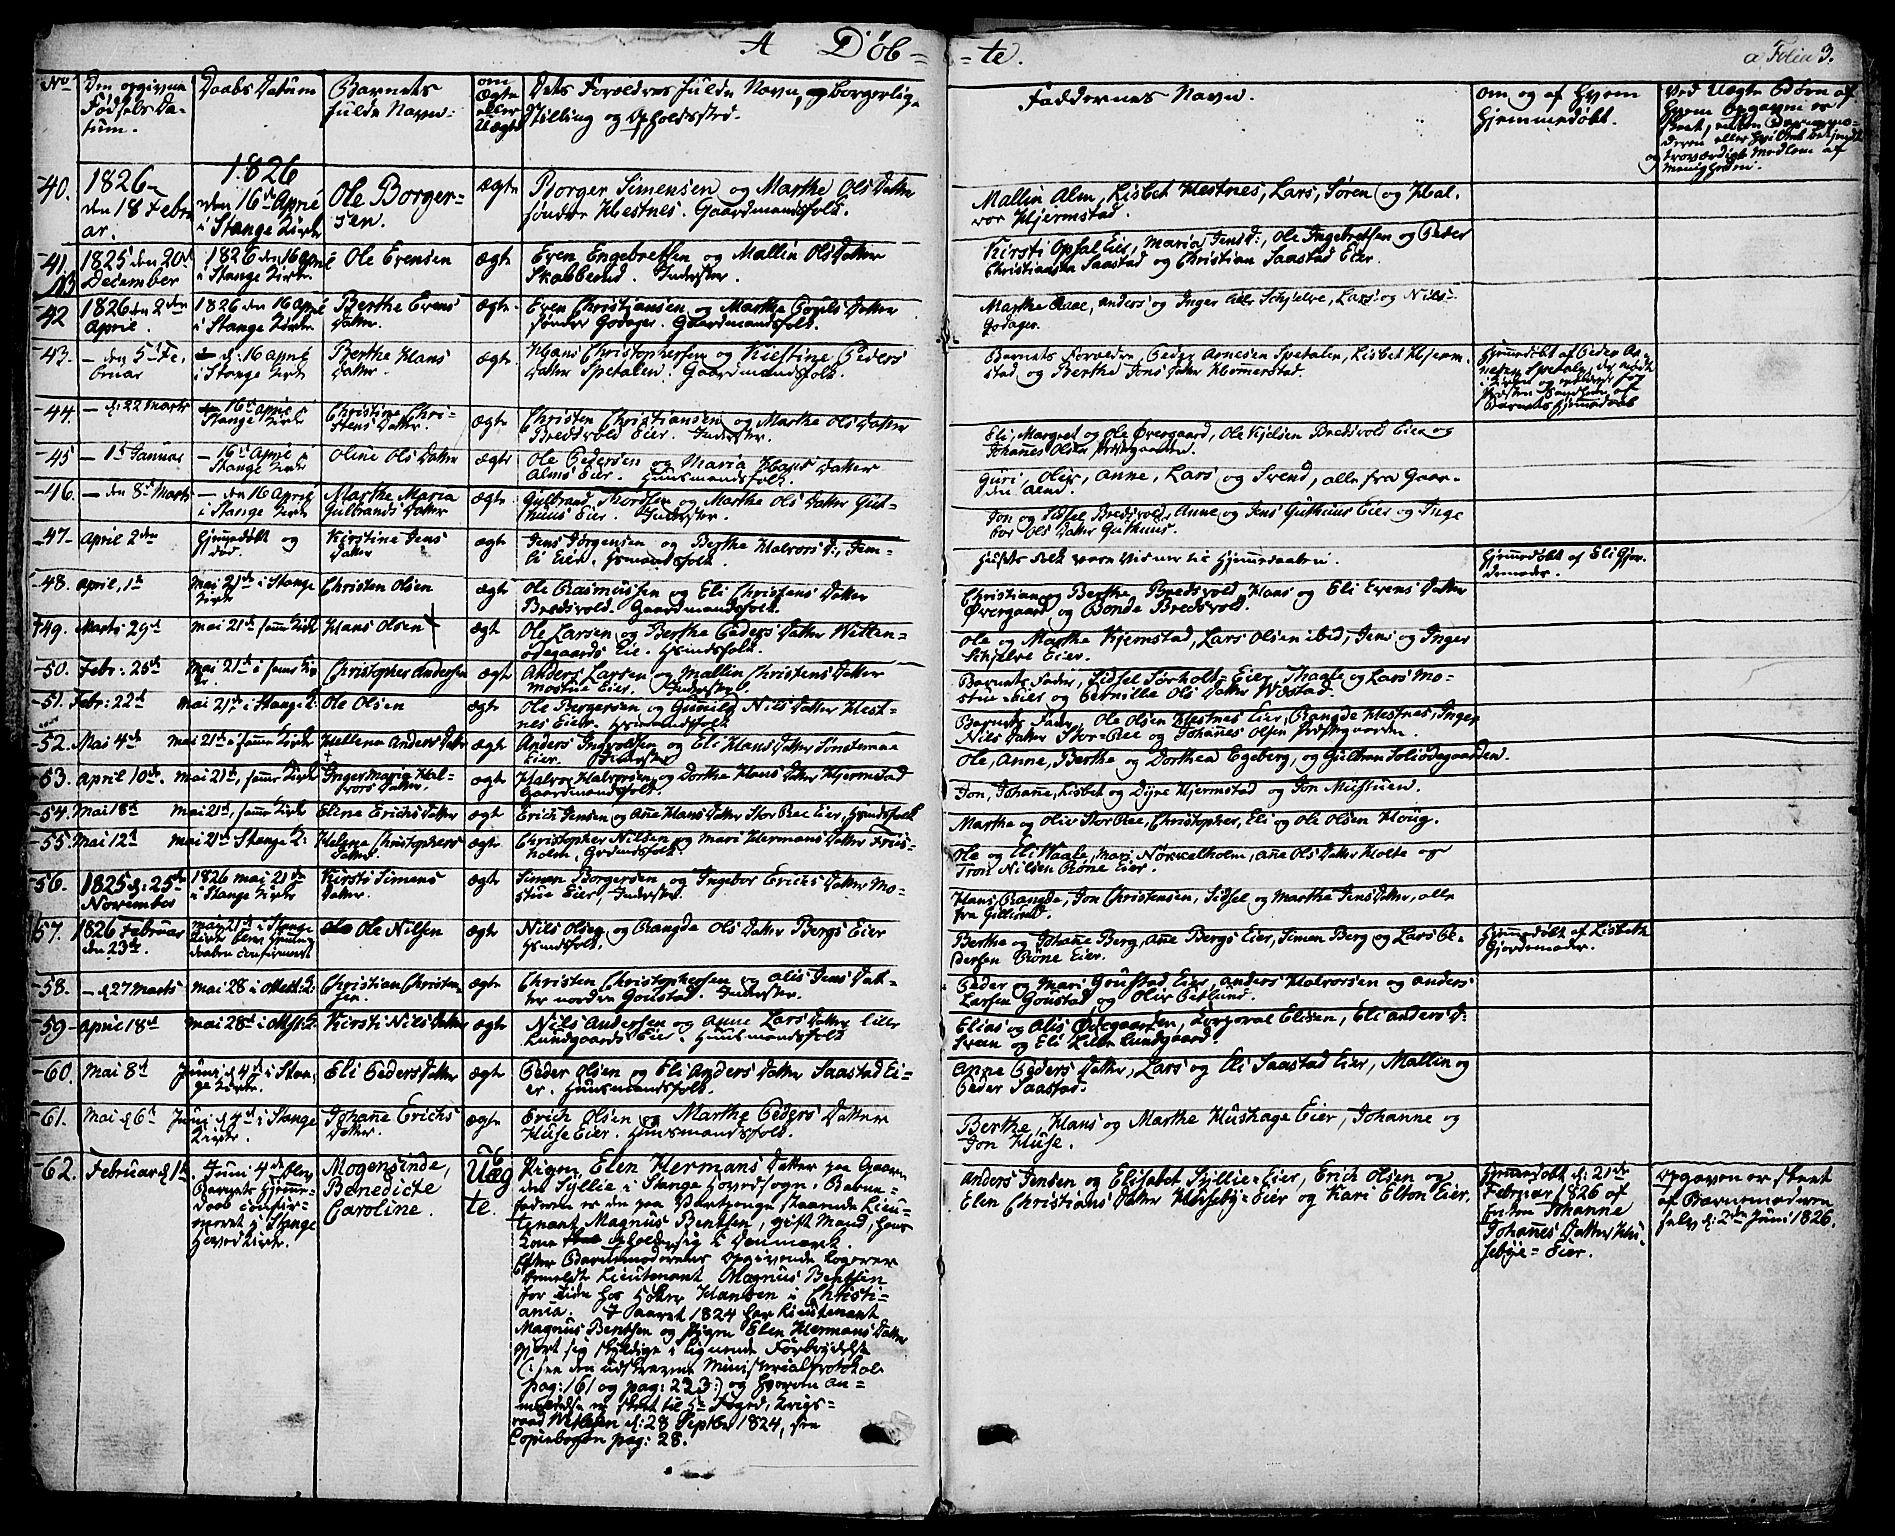 A Døb=
=te.
a Folio 3.
No
Den opgivne Fødsels Datum.
Daabs Datum
Barnets fulde Navn.
om Ægte eller Uægte
Dets Forældres fulde Navn, og borgerlige Stilling og Opholdssted.
Faddernes Navn.
om og af Hvem Hjemmedøbt.
40. 1826 den 18 Februar.
1826 den 16de April i Stange Kirke
Ole Borgersen.
ægte
Borger Simensen og Marthe Ols Datter søndre Hestnes. Gaardmandsfolk.
Mallin Alm, Lisbet Hestnes, Lars, Søren og Halvor Hjermstad.
41. 1825 den 20de December
1826 den 16 April i Stange Kirke
Ole Evensen
ægte
Even Engebretsen og Mallin Ols Datter Skabberud. Inderster.
Kirsti Opsal Eier, Maria Jensd:, Ole Ingebretsen og Peder Christiansen Saastad og Christian Saastad Eier.
42 1826 den 2den April.
1826 den 16 April i Stange Kirke
Berthe Evens Datter.
ægte
Even Christiansen og Marthe Pouls Datter søndre Godager. Gaardmandsfolk.
Marthe Aaae, Anders og Inger Schjelve, Lars og Nils Godager.
43. — den 5te Februar
d: 16 April i Stange Kirke
Berthe Hans Datter
ægte
Hans Christophersen og Kirstine Peders Datter Spetalen. Gaardmandsfolk.
Barnets Forældre, Peder Arnesen Spetalen, Lisbet Hjermstad og Berthe Jens Datter Hommerstad.
44. — d: 22 Marts
16de April i Stange Kirke
Christine Christens Datter.
ægte
Christen Christiansen og Marthe Ols Datter Bredsvold Eier. Inderster.
Eli, Margret og Ole Øvergaard, Ole Kjelsen Bredsvold Eier og Johannes Olsen Præstegaarden.
45 — 1ste Januar
— 16de April Stange Kirke
Oline Ols Datter
ægte
Ole Pedersen og Maria Hans Datter Alms Eier. Huusmandsfolk.
Guri, Oliv, Anne, Lars og Svend, alle fra Gaarden Alm.
46. — den 8de Marts
— den 16 April i Stange Kirke
Marthe Maria Gulbrands Datter
ægte
Gulbrand Thordsen og Marthe Ols Datter Guthuus Eier. Inderster.
Jon og Sidsel Bredsvold, Anne og Jens Guthuus Eier og Ingebor Ols Datter Guthuus.
47. April 2den
Hjemmedøbt og død.
Kirstine Jens Datter
ægte
Jens Jørgensen og Berthe Halvors D:, Jemli Eier. Hsmandsfolk.
Husets Folk vare Vidner til Hjemmedaaben.
Hjemmedøbt af Eli Gjordemoder.
48. April, 1ste
Mai 21de i Stange Kirke
Christen Olsen
ægte
Ole Rasmussen og Eli Christens Datter Bredsvold. Gaardmandsfolk.
Christian og Berthe Bredsvold, Hans og Eli Evens Datter Øvergaard og Bonde Bredsvold.
49. Marts 29de
Mai 21de samme Kirke
Hans Olsen
ægte
Ole Larsen og Berthe Peders Datter Wittenødegaards Eie. Hsmdsfolk.
Ole og Marthe Kjermstad, Lars Olsen ibid, Jens og Inger Schjelve Eier.
50. Febr: 25de
Mai 21de i samme Kirke
Christopher Andersen
ægte
Anders Larsen og Mallin Christens Datter Mostue Eier. Inderster.
Barnets Fader, Sidsel Sørholt=Eier, Thaale og Lars Mostue=Eier og Pernille Ols Datter Wolstad.
51. Febr: 22de
Mai 21de i Stange K:
Ole Olsen
ægte
Ole Bergersen og Gunild Nils Datter Hestnes Eier. Hsmandsfolk
Barnets Fader, Ole Olsen Hestnes Eier, Rangde Hestnes, Inger Nils Datter Stor=Ree og Johannes Olsen Præstegaarden.
52. Mai 4de
Mai 21de i samme Kirke
Hellena Anders Datter
ægte
Anders Ingvoldsen og Eli Hans Datter Sønsteraae Eier. Inderster
Ole, Anne, Berthe og Dorthea Egeberg, og Gulbran Soliødegaarden.
53. April 10de.
Mai 21de, samme Kirke
Inger Maria Halvors Datter.
ægte
Halvor Halvorsen og Dorthe Hans Datter Hjermstad Gaardmandsfolk.
Jon, Johanne, Lisbet og Dijre Hjermstad og Jon Mustuen.
54. Mai 18de
Mai 21de, samme Kirke
Eline Erichs Datter
ægte
Erich Jensen og Anne Hans Datter Stor Ree Eier, Hsmdsfolk
Marthe og Oliv Stor Ree, Christopher, Eli og Ole Olsen Houg.
55. Mai 12de
Mai 21de Stange K:
Helene Christophers Datter.
ægte
Christopher Nilsen og Mari Hermans Datter Frisholm. Grdmdsfolk.
Ole og Eli Waale, Mari Nøkkelholm, Anne Ols Datter Holte og Tron Nilsen Røne Eier.
56. 1825 d: 25de November
1826 Mai 21de i Stange Kirke
Kirsti Simens Datter.
ægte
Simen Borgersen og Ingebor Erichs Datter Mostue Eier, Inderster.
Hans, Rangde, Jon Christensen, Sidsel og Marthe Jens Datter, alle fra Gillund.
57. 1826 Februar den 23de.
Mai 21de i Stange Kirke blev Hjemmedaaben confirmeret
Ole Nilsen
ægte
Nils Olsen og Rangde Ols Datter Bergs Eier Hsmdsfolk.
Berthe og Johanne Berg, Anne Bergs Eier, Simen Berg og Lars Pedersen Røne Eier.
Hjemmedøbt af Lisbeth Gjordemoder.
58. — d: 27 Marts
Mai 28 i Ottest: K:
Christian Christensen.
ægte
Christen Christophersen og Alis Jens Datter nordre Goustad. Inderster.
Peder og Mari Goustad Eier, Anders Halvorsen og Anders Larsen Goustad og Oliv Petlund.
59. April 18de
Mai 28de i Ottest: K:
Kirsti Nils Datter
ægte
Nils Andersen og Anne Lars Datter lille Lundgaards Eier. Huusmandsfolk
Elias og Alis Ødegaarden, Corporal Elisen, Eli Anders D: Sveen og Eli Lille Lundgaard.
60. Mai 8de
Juni d: 4de i Stange Kirke.
Eli Peders Datter
ægte
Peder Olsen og Eli Anders Datter Saastad Eier. Huusmandsfolk.
Anne Peders Datter, Lars og Eli Saastad Eier, Mallin og Peder Saastad.
61. Mai d: 6te
Juni d: 4de i Stange Kirke.
Johanne Erichs Datter.
ægte
Erich Olsen og Marthe Peders Datter Huse Eier. Huusmandsfolk.
Berthe, Hans og Marthe Hushage Eier, Johanne og Jon Huse.
62. Februar d: 1ste
Juni 4de blev Barnets Hjemmedaab confirmeret i Stange Hovedkirke.
Mogensinde, Benedicte Caroline.
Uægte.
Pigen Elen Hermans Datter paa Gaarden Syllie i Stange Hovedsogn. Barnefaderen er den paa Vartpenge staaende Lieutenant Magnus Bentsen, gift Mand, hvis Kone opholder sig i Danmark.
Efter Barnemoderens Opgivende logerer bemeldte Lieutenant Magnus Bentsen for Tiden hos Høker Hansen i Christiania. I Aaret 1824 har Lieutenant Magnus Bentsen og Pigen Elen Hermans Datter gjort sig skyldige i lignende Forbrydelse (: see den udskrevne Ministerialprotokol pag: 161 og pag: 223:) og hvorom Anmeldelse er skeet til Hr Foged, Krigsraad Nielsen d: 28 Septbr 1824, see Copiebogen pag: 28.
Anders Jensen og Elisabet Syllie=Eier, Erich Olsen og Elen Christians Datter Horseby=Eier og Kari Elton Eier.
Hjemmedøbt d: 21de Februar 1826 af Enken Johanne Johannes Datter Husebye=Eier.
Opgaven er skeet af Barnemoderen selv d: 2den Juni 1826.